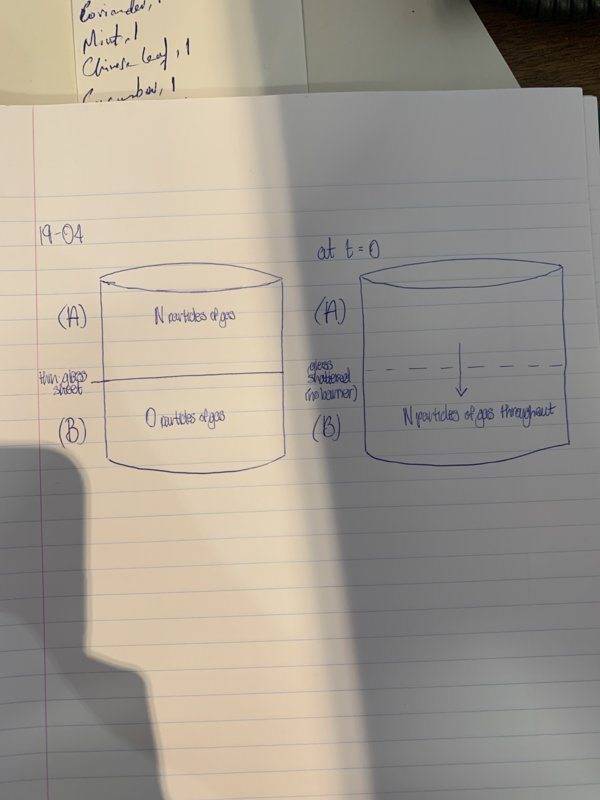 Coriander, 1
Mint, 1
Chinese leaf, 1
Cucumber, 1
19-04
at t = 0
(A)
N particles of gas
(A)
thin glass
sheet
glass
shattered
(no barrier)
(B)
0 particles of gas
(B)
N particles of gas throughout